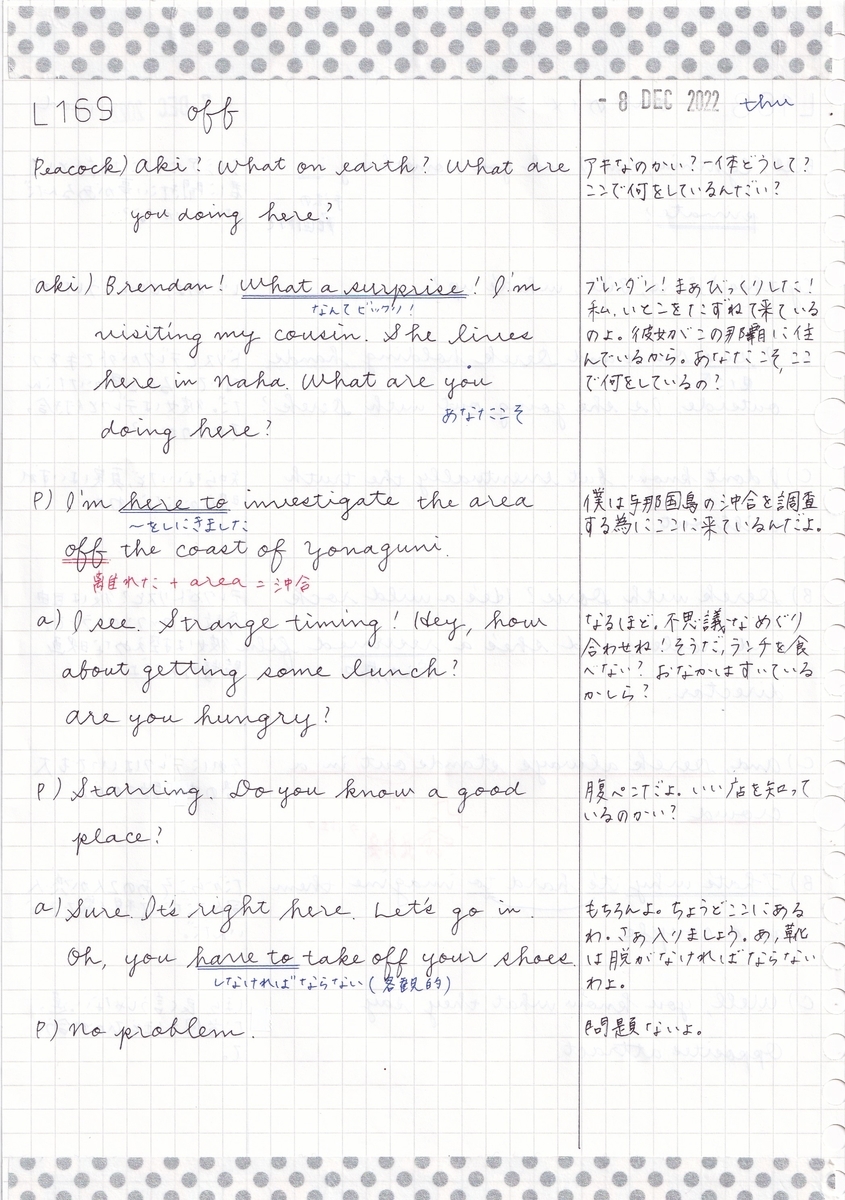 L169 off
- 8 DEC 2022 thu
Peacock) Aki? What on earth? What are
you doing here?
アキなのかい?一体どうして?
ここで何をしているんだい?
aki) Brendan! What a surprise! I'm
なんてビックリ!
visiting my cousin. She lives
here in Naha. What are you
あなたこそ
doing here?
ブレンダン!まあびっくりした!
私、いとこをたずねて来ている
のよ。彼女がこの那覇に住
んでいるから。あなたこそ、ここ
で何をしているの?
P) I'm here to investigate the area
〜をしにきました
off the coast of Yonaguni.
離れた + area = 沖合
僕は与那国島の沖合を調査
する為にここに来ているんだよ。
a) I see. Strange timing! Hey, how
about getting some lunch?
are you hungry?
なるほど。不思議なめぐり
合わせね!そうだ,ランチを食
べない? おなかはすいている
かしら?
P) Starving. Do you know a good
place?
腹ペコだよ。いい店を知って
いるのかい?
a) Sure. It's right here. Let's go in.
Oh, you have to take off your shoes.
しなければならない(客観的)
もちろんよ。ちょうどここにある
わ。さあ入りましょう。あ,靴
は脱がなければならない
わよ。
P) No problem.
問題ないよ。